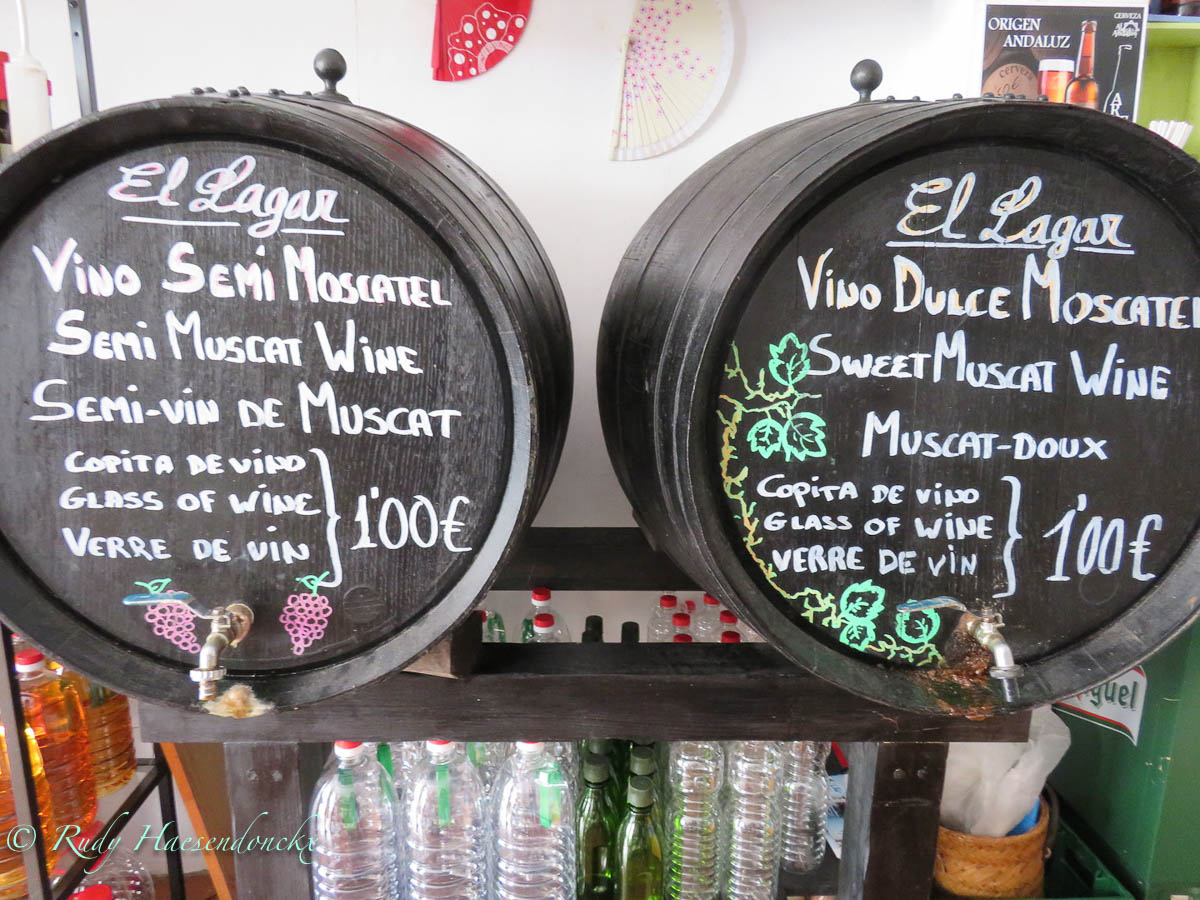 El Lagar
Vino Semi Moscatel
Semi Muscat Wine
Semi-vin de Muscat
Copita de vino
Glass of wine
Verre de vin
1'00€
El Lagar
Vino Dulce Moscatel
Sweet Muscat Wine
Muscat-doux
Copita de vino
Glass of wine
Verre de vin
1'00€
ORIGEN
ANDALUZ
CERVEZA
© Rudy Haesendonckx